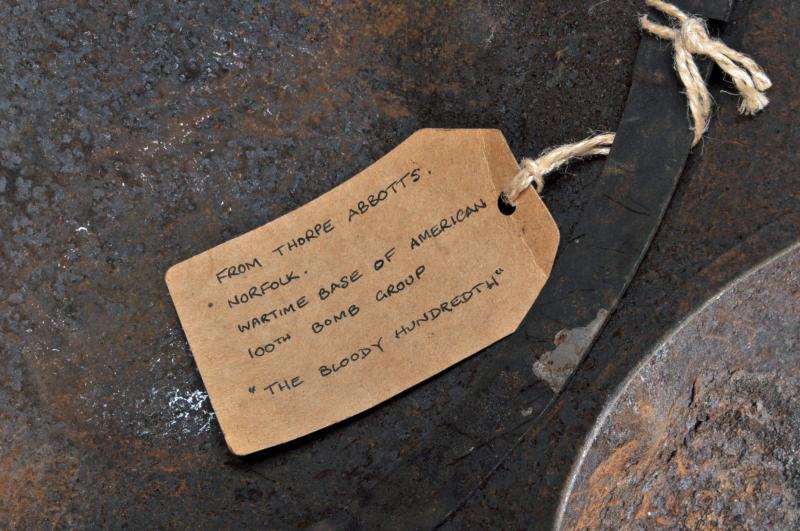 FROM THORPE ABBOTTS.
NORFOLK.
WARTIME BASE OF AMERICAN
100TH BOMB GROUP
"THE BLOODY HUNDREDTH"